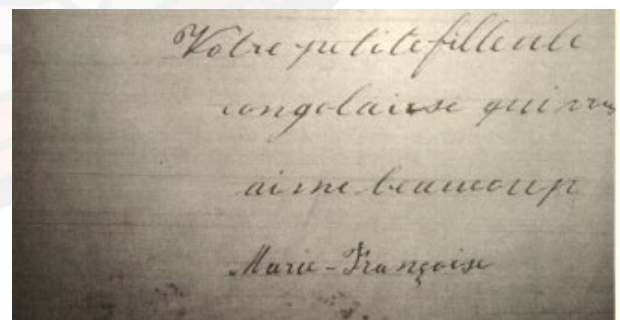 Votre petite filleule
congolaise qui vous
aime beaucoup
Marie-Françoise